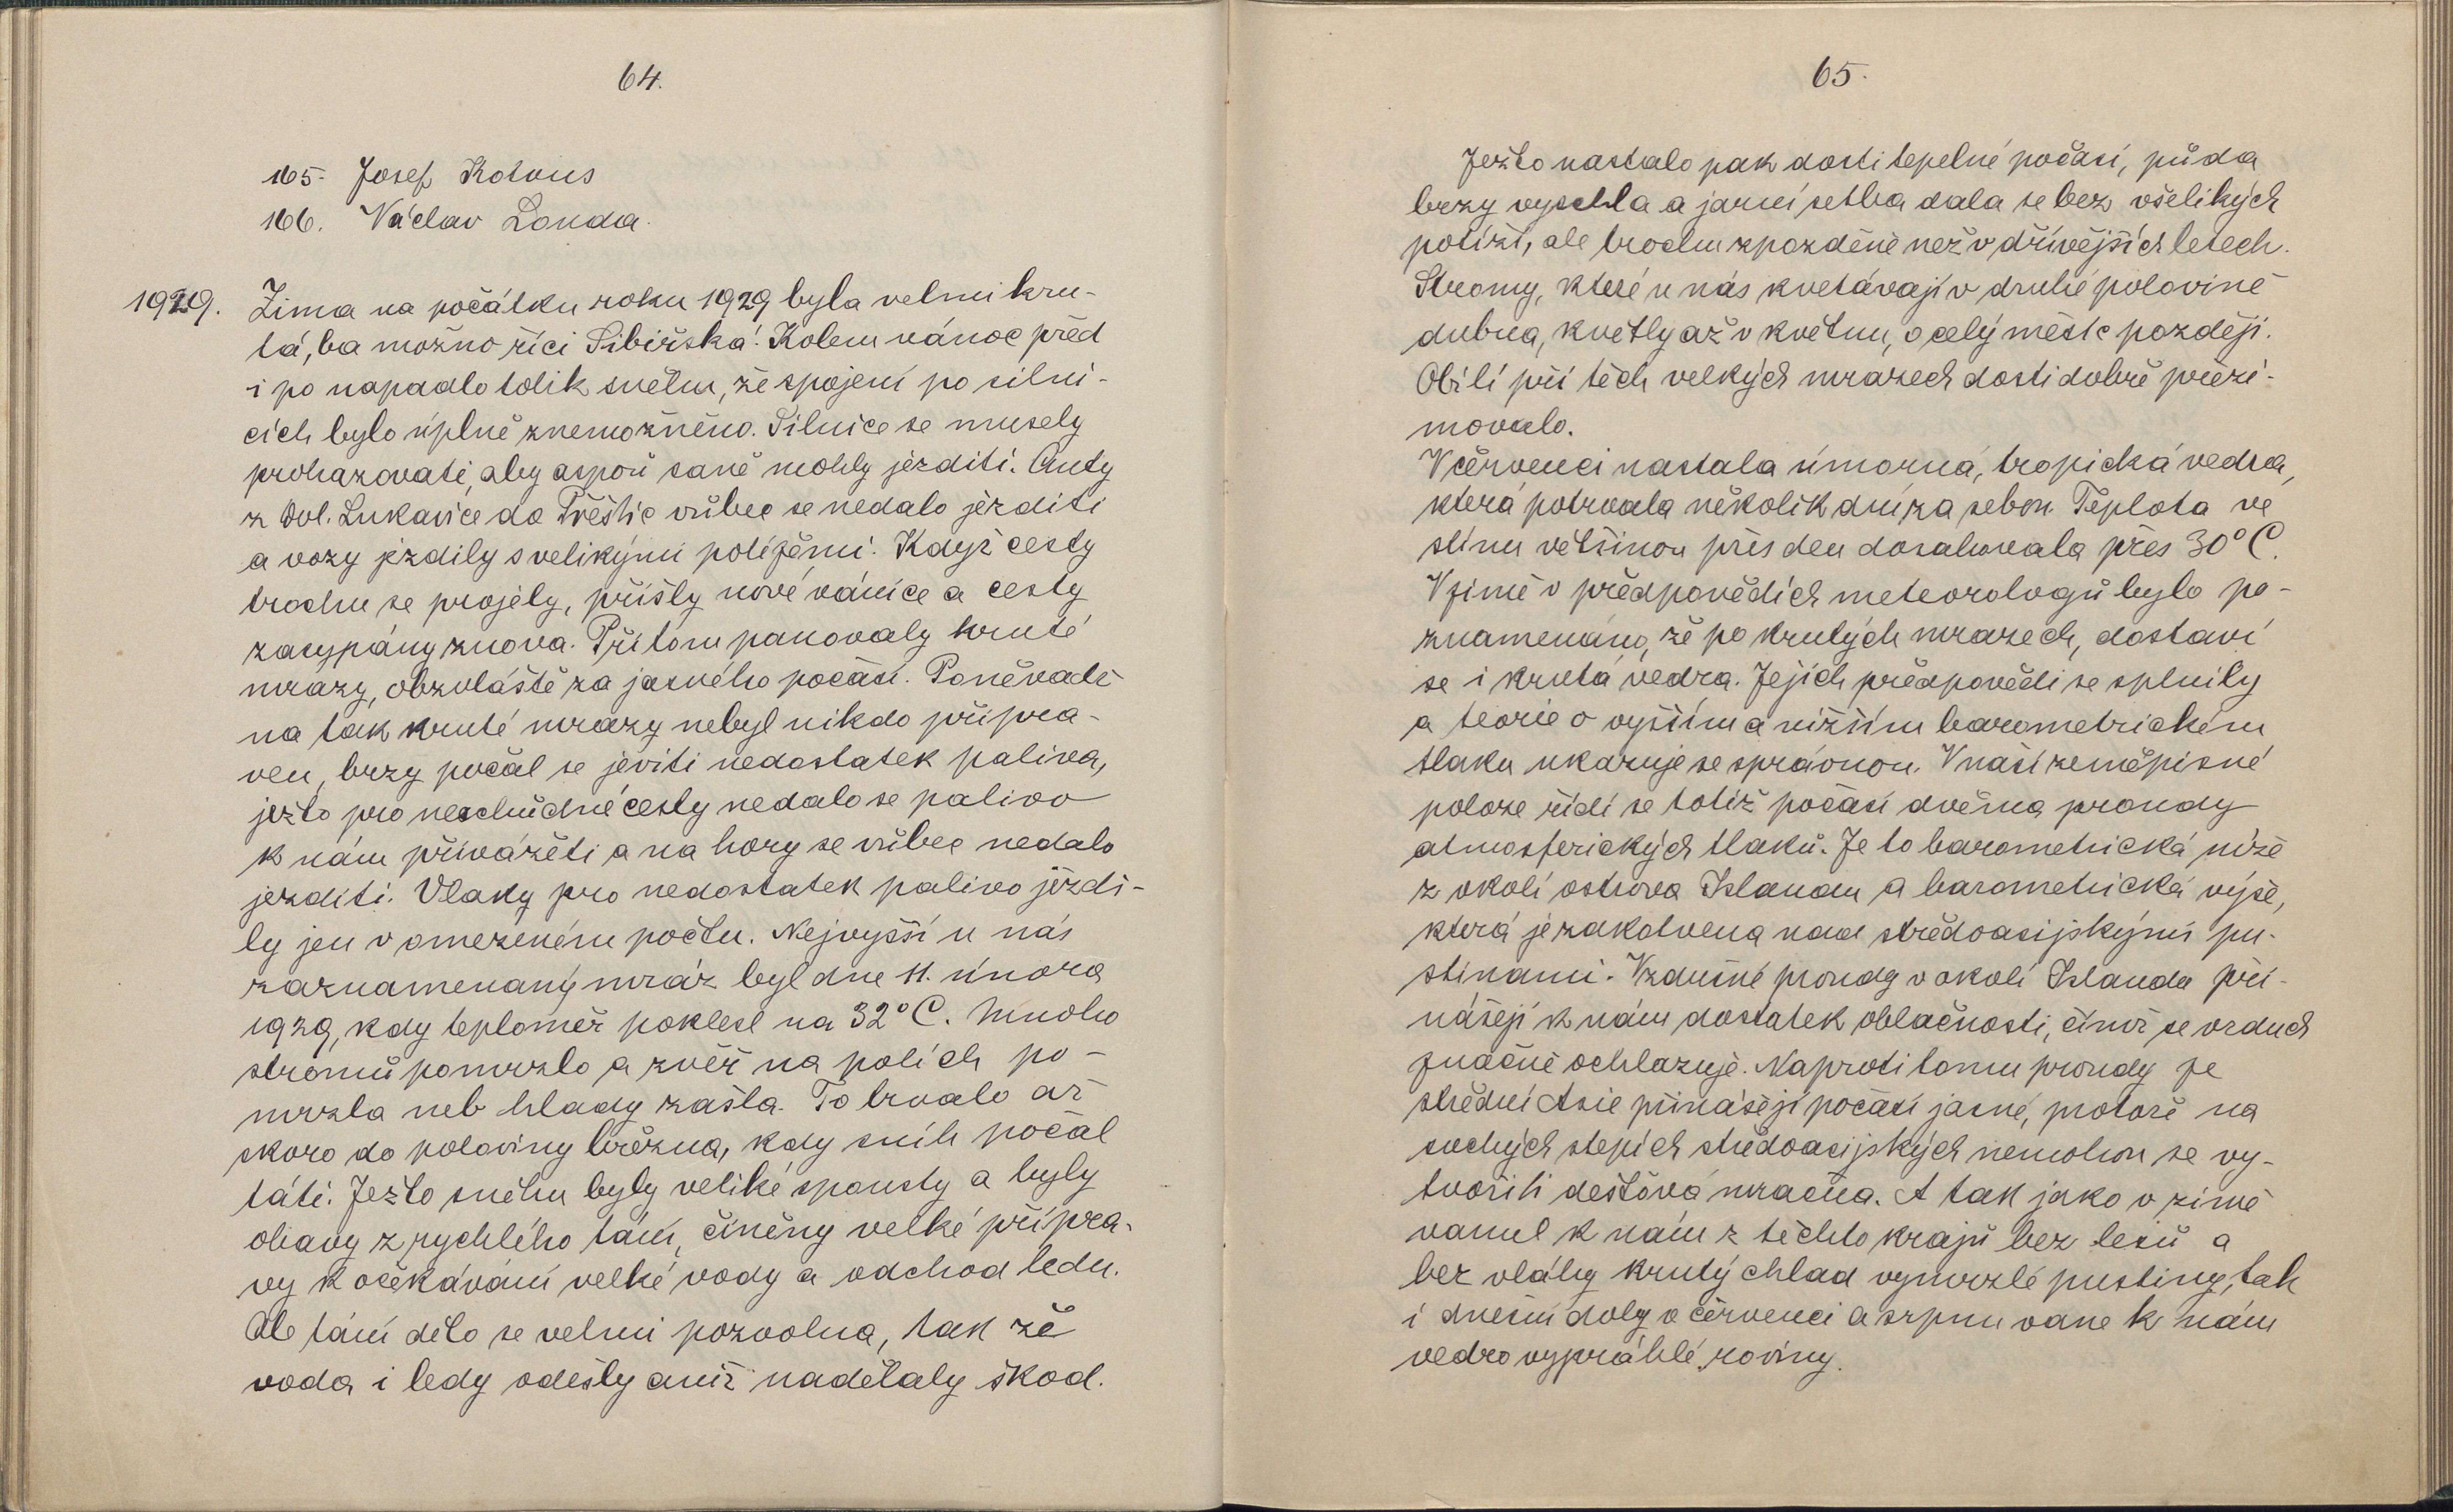 64.
165. Josef Kotous
166. Václav Londa.
1929. Zima na počátku roku 1929 byla velmi kru-
tá, ba možno říci Sibiřská! Kolem vánoc před
i po napadlo tolik sněhu, že spojení po silni-
cích bylo úplně znemožněno. Silnice se musely
prohazovati, aby aspoň saně mohly jezditi. Auty
z Dol. Lukavice do Přeštic vůbec se nedalo jezditi
a vozy jezdily s velikými potížemi. Když cesty
trochu se projely, přišly nové vánice a cesty
zasypány znova. Při tom panovaly kruté
mrazy, obzvláště za jasného počasí. Poněvadž
na tak kruté mrazy nebyl nikdo připra-
ven, brzy počal se jeviti nedostatek paliva,
ježto pro neschůdné cesty nedalo se palivo
k nám přivážeti a na hory se vůbec nedalo
jezditi. Vlaky pro nedostatek palivo jezdi-
ly jen v omezeném počtu. Nejvyšší u nás
zaznamenaný mráz byl dne 11. února
1929, kdy teploměr poklesl na 32° C. Mnoho
stromů pomrzlo a zvěř na polích po-
mrzla neb hlady zašla. To trvalo až
skoro do poloviny března, kdy sníh počal
táti. Ježto sněhu byly veliké spousty a byly
obavy z rychlého tání, činěny velké přípra-
vy k očekávání velké vody a odchod ledu.
Ale tání dělo se velmi pozvolna, tak že
voda i ledy odešly aniž nadělaly škod.
65.
Ježto nastalo pak dosti tepelné počasí, půda
brzy vyschla a jarní setba dala se bez všelikých
potíží, ale trochu zpožděně než v dřívějších letech.
Stromy, které u nás kvetávají v druhé polovině
dubna, kvetly až v květnu, o celý měsíc později.
Obilí při těch velkých mrazech dosti dobře přezi-
movalo.
V červenci nastala úmorná, tropická vedra,
která potrvala několik dní za sebou. Teplota ve
stínu většinou přes den dosahovala přes 30° C.
V zimě v předpovědích meteorologů bylo po-
znamenáno, že po krutých mrazech, dostaví
se i krutá vedra. Jejich předpovědi se splnily
a teorie o vyšším a nižším barometrickém
tlaku ukazuje se správnou. V naší zeměpisné
poloze řídí se totiž počasí dvěma proudy
atmosferických tlaků. Je to barometrická níže
z okolí ostrova Islandu a barometrická výše,
která je zakotvena nad středoasijskými pu-
stinami. Vzdušné proudy v okolí Islandu při-
nášejí k nám dostatek oblačnosti, čímž se vzduch
značně ochlazuje. Naproti tomu proudy ze
střední Asie přinášejí počasí jasné, protože na
suchých stepích středoasijských nemohou se vy-
tvořiti dešťová mračna. A tak jako v zimě
vanul k nám z těchto krajů bez lesů a
bez vláhy krutý chlad vymrzlé pustiny, tak
i dnešní doby v červenci a srpnu vane k nám
vedro vyprahlé roviny.